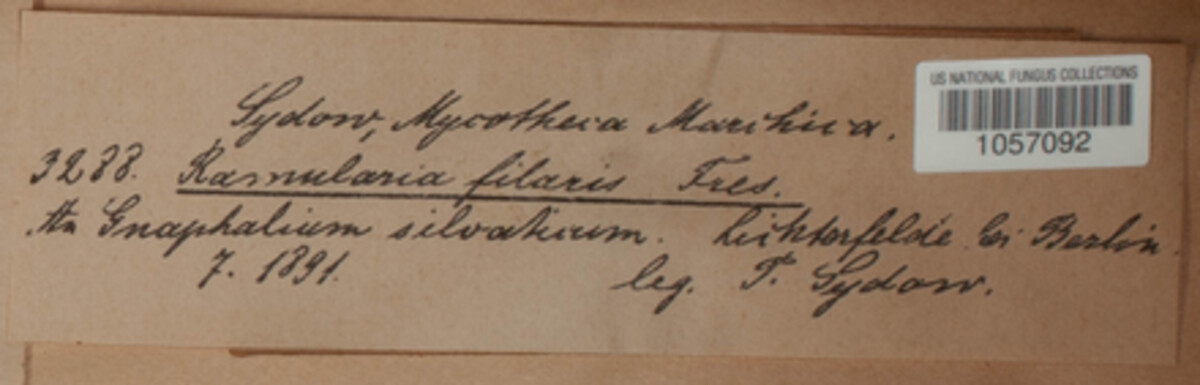 Sydow, Mycotheca Marchica.
3288. Ramularia filaris Fres.
An Gnaphalium silvaticum. Lichterfelde bei Berlin.
7. 1891. leg. P. Sydow.
US NATIONAL FUNGUS COLLECTIONS
1057092